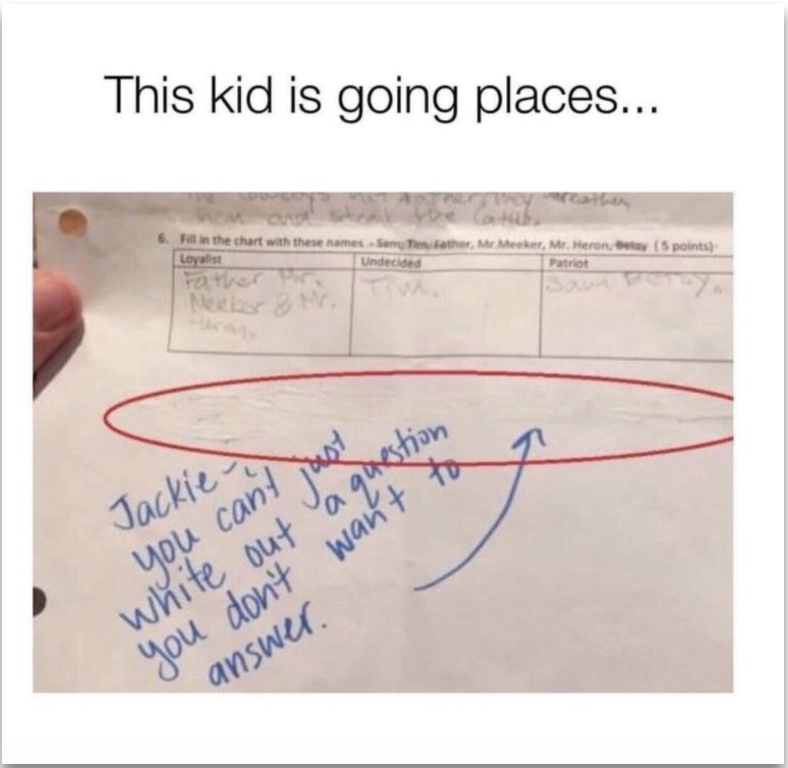 This kid is going places...
hit
hem and steal the
6. Fill in the chart with these names - Sam, Tim, Father, Mr.Meeker, Mr. Heron, Betsy (5 points)-
Loyalist Undecided Patriot
Father Mr. Tim. Sam Betsy.
Meeker & Mr.
Heron.
Jackie -
you can't just
white out a question
you don't want to
answer.